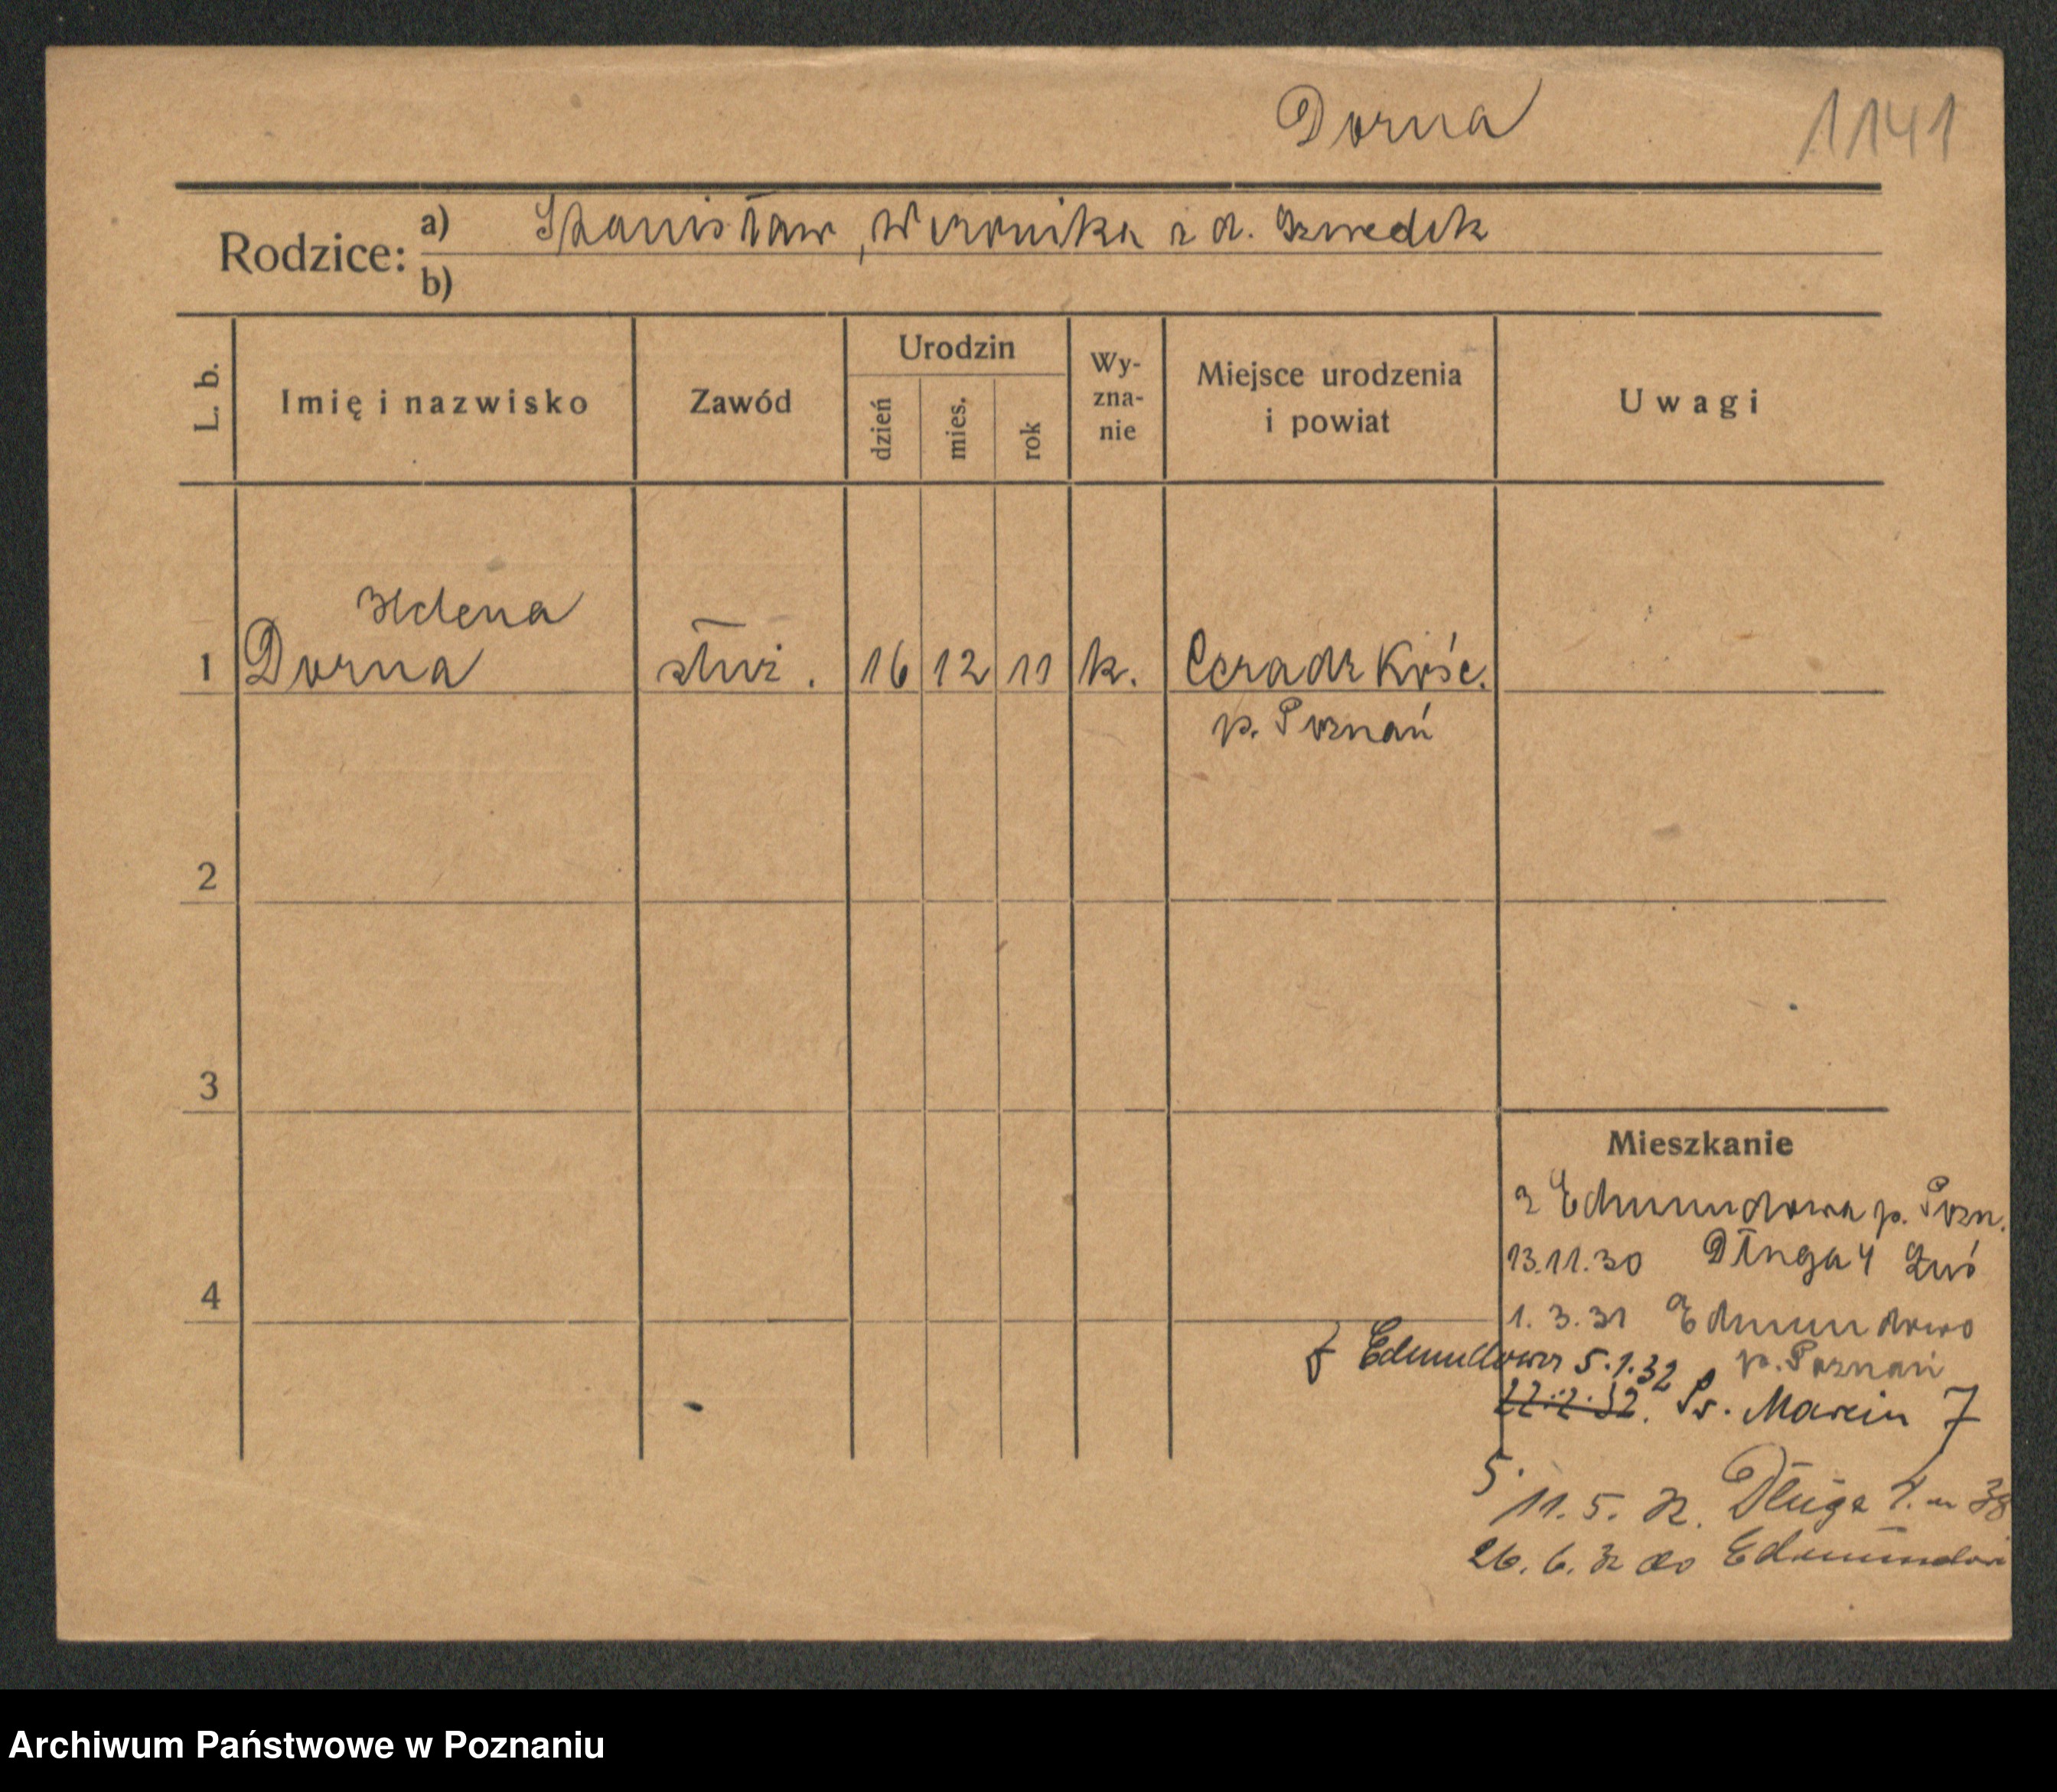 Dorna 1141
Rodzice: a) Stanisław, Weronika z d. Szwedek
b)
L. b. Imię i nazwisko Zawód Urodzin dzień mies. rok Wy-zna-nie Miejsce urodzenia i powiat Uwagi
Helena
1 Dorna służ. 16 12 11 k. Ceradz Kośc.
p. Poznań
2
3
Mieszkanie
z Edmundowa p. Pozn.
13.11.30 Długa 4
4
1.3.31 Edmundowo
p. Poznań
z Edmundowa 5.1.32
22.2.32. Św. Marcin 7
5.
11.5.32. Długa 4. m 38
26.6.32 do Edmundowa
Archiwum Państwowe w Poznaniu